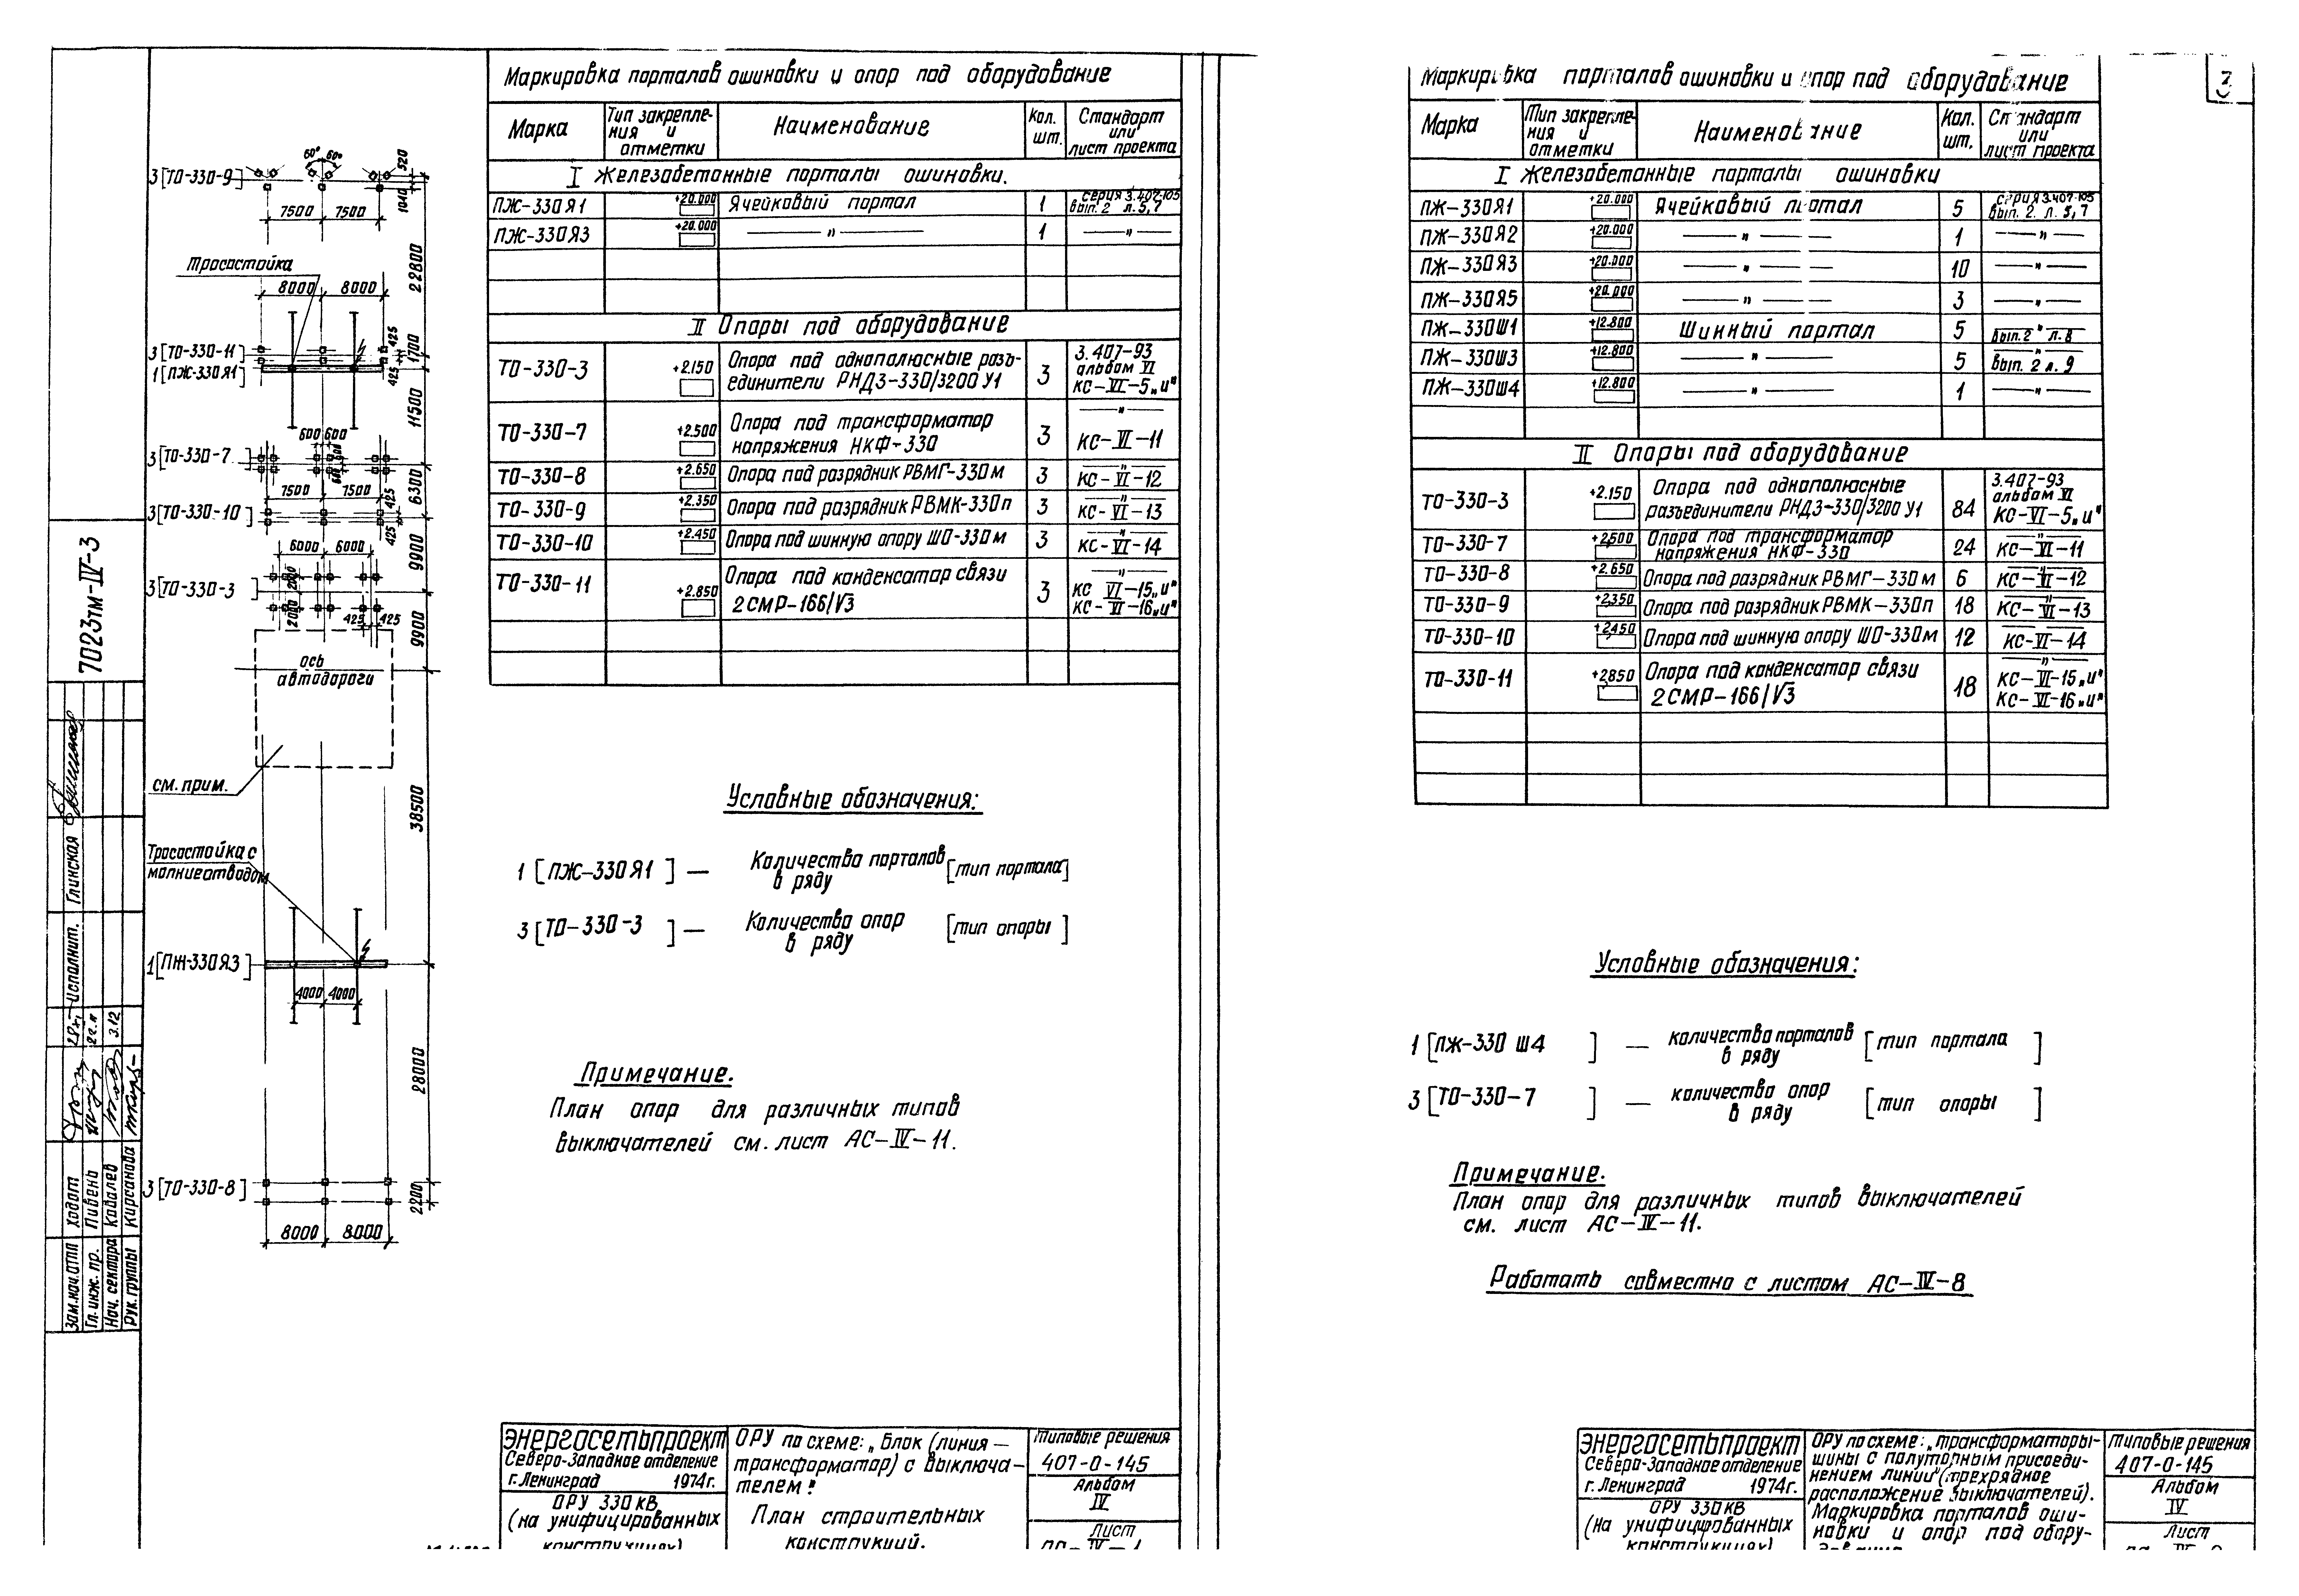 Маркировка порталов ошиновки и опор под оборудование
Марка
Тип закрепле-
ния и
отметки
Наименование
Кол.
шт.
Стандарт
или
лист проекта
I Железобетонные порталы ошиновки.
ПЖ-330Я1 +20.000 Ячейковый портал 1 серия 3.407-105
вып. 2 л. 5, 7
ПЖ-330Я3 +20.000 — " — 1 — " —
II Опоры под оборудование
ТО-330-3 +2.150 Опора под однополюсные разъ-
единители РНДЗ-330/3200 У1 3 3.407-93
альбом VI
КС-VI-5„и"
ТО-330-7 +2.500 Опора под трансформатор
напряжения НКФ-330 3 — " —
КС-VI-11
ТО-330-8 +2.650 Опора под разрядник РВМГ-330м 3 — " —
КС-VI-12
ТО-330-9 +2.350 Опора под разрядник РВМК-330п 3 — " —
КС-VI-13
ТО-330-10 +2.450 Опора под шинную опору ШО-330м 3 — " —
КС-VI-14
ТО-330-11 +2.850 Опора под конденсатор связи
2СМР-166/√3 3 — " —
КС VI-15„и"
КС-VI-16„и"
3[ТО-330-9]
60° 60°
520
1040
7500 7500
22800
Тросостойка
8000 8000
425
1700
3[ТО-330-11]
1[ПЖ-330Я1]
425
11500
600 600
3[ТО-330-7]
600 900
7500 7500
425
6300
3[ТО-330-10]
425
6000 6000
9900
2000
3[ТО-330-3]
2000
425 425
9900
ось
автодороги
см. прим.
38500
Тросостойка с
молниеотводом
1[ПЖ-330Я3]
4000 4000
28000
3[ТО-330-8]
2200
8000 8000
Условные обозначения:
1 [ПЖ-330Я1] — Количество порталов [тип портала]
в ряду
3 [ТО-330-3] — Количество опор [тип опоры]
в ряду
Примечание.
План опор для различных типов
выключателей см. лист АС-IV-11.
7023тм-IV-3
исполнит. Глинская
Зам.нач.ОТП Ходот
Гл. инж. пр. Пивень
Нач. сектора Ковалев 3.12
Рук. группы Кирсанова
ЭНЕРГОСЕТЬПРОЕКТ
Северо-Западное отделение
г. Ленинград 1974г.
ОРУ 330 кВ
(на унифицированных
конструкциях)
ОРУ по схеме: „Блок (линия —
трансформатор) с выключа-
телем"
План строительных
конструкций.
Типовые решения
407-0-145
Альбом
IV
Лист
3
Маркировка порталов ошиновки и опор под оборудование
Марка
Тип закрепле-
ния и
отметки
Наименование
Кол.
шт.
Стандарт
или
лист проекта
I Железобетонные порталы ошиновки
ПЖ-330Я1 +20.000 Ячейковый портал 5 серия 3.407-105
вып. 2. л. 5, 7
ПЖ-330Я2 +20.000 — " — 1 — " —
ПЖ-330Я3 +20.000 — " — 10 — " —
ПЖ-330Я5 +20.000 — " — 3 — " —
ПЖ-330Ш1 +12.800 Шинный портал 5 — " —
вып. 2 л. 8
ПЖ-330Ш3 +12.800 — " — 5 — " —
вып. 2 л. 9
ПЖ-330Ш4 +12.800 — " — 1 — " —
II Опоры под оборудование
ТО-330-3 +2.150 Опора под однополюсные
разъединители РНДЗ-330/3200 У1 84 3.407-93
альбом VI
КС-VI-5„и"
ТО-330-7 +2,500 Опора под трансформатор
напряжения НКФ-330 24 КС-VI-11
ТО-330-8 +2.650 Опора под разрядник РВМГ-330м 6 — " —
КС-VI-12
ТО-330-9 +2,350 Опора под разрядник РВМК-330п 18 — " —
КС-VI-13
ТО-330-10 +2,450 Опора под шинную опору ШО-330м 12 — " —
КС-VI-14
ТО-330-11 +2,850 Опора под конденсатор связи
2СМР-166/√3 18 — " —
КС-VI-15„и"
КС-VI-16„и"
Условные обозначения:
1 [ПЖ-330 Ш4] — количество порталов [тип портала]
в ряду
3 [ТО-330-7] — количество опор [тип опоры]
в ряду
Примечание.
План опор для различных типов выключателей
см. лист АС-IV-11.
Работать совместно с листом АС-IV-8
ЭНЕРГОСЕТЬПРОЕКТ
Северо-Западное отделение
г. Ленинград 1974г.
ОРУ 330 кВ
(на унифицированных
конструкциях)
ОРУ по схеме: „трансформаторы-
шины с полуторным присоеди-
нением линий" (трехрядное
расположение выключателей).
Маркировка порталов оши-
новки и опор под обору-
дование
Типовые решения
407-0-145
Альбом
IV
Лист